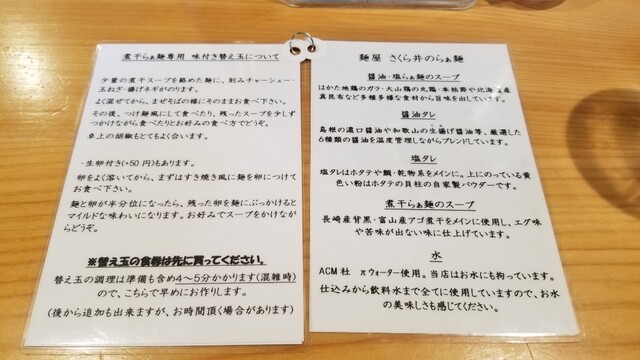 煮干らぁ麺専用 味付き替え玉について
少量の煮干スープを絡めた麺に、刻みチャーシュー・
玉ねぎ・揚げネギがのります。
よく混ぜてから、まぜそばの様にそのままお食べ下さい。
その後、つけ麺風にして食べたり、残ったスープを少しず
つかけながら食べたりとお好みの食べ方でどうぞ。
卓上の胡椒もとてもよく合います。
・生卵付き(+50円)もあります。
卵をよく溶いてから、まずはすき焼き風に麺を卵につけて
お食べ下さい。
麺と卵が半分位になったら、残った卵を麺にぶっかけると
マイルドな味わいになります。お好みでスープをかけなが
らどうぞ。
※替え玉の食券は先に買ってください。
替え玉の調理は準備も含め4~5分かかります(混雑時)
ので、こちらで早めにお作りします。
(後から追加も出来ますが、お時間頂く場合があります)
麺屋 さくら井のらぁ麺
醤油・塩らぁ麺のスープ
はかた地鶏のガラ・大山鶏の丸鶏・本枯節や北海道産
真昆布など多種多様な食材から旨味を出しています。
醤油タレ
島根の濃口醤油や和歌山の生揚げ醤油等、厳選した
6種類の醤油を温度管理しながらブレンドしています。
塩タレ
塩タレはホタテや鯛・乾物系をメインに。上にのっている黄
色い粉はホタテの貝柱の自家製パウダーです。
煮干らぁ麺のスープ
長崎産背黒・富山産アゴ煮干をメインに使用し、エグ味
や苦味が出ない味に仕上げています。
水
ACM社 πウォーター使用。当店はお水にも拘っています。
仕込みから飲料水まで全てに使用していますので、お水
の美味しさも感じてください。